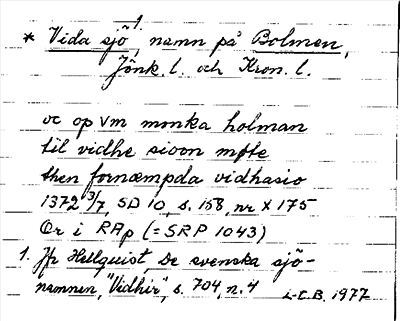 * Vida sjö 1, namn på Bolmen,
Jönk. l. och Kron. l.
oc op vm monka holman
til vidhe sioon møte
then fornæmpda vidhasio
1372 3/7, SD 10, s. 158, nr X 175
Or i RAp (= SRP 1043)
1. Jfr Hellquist, De svenska sjö-
namnen, "Vidhir", s. 704, n. 4
L-C.B. 1977